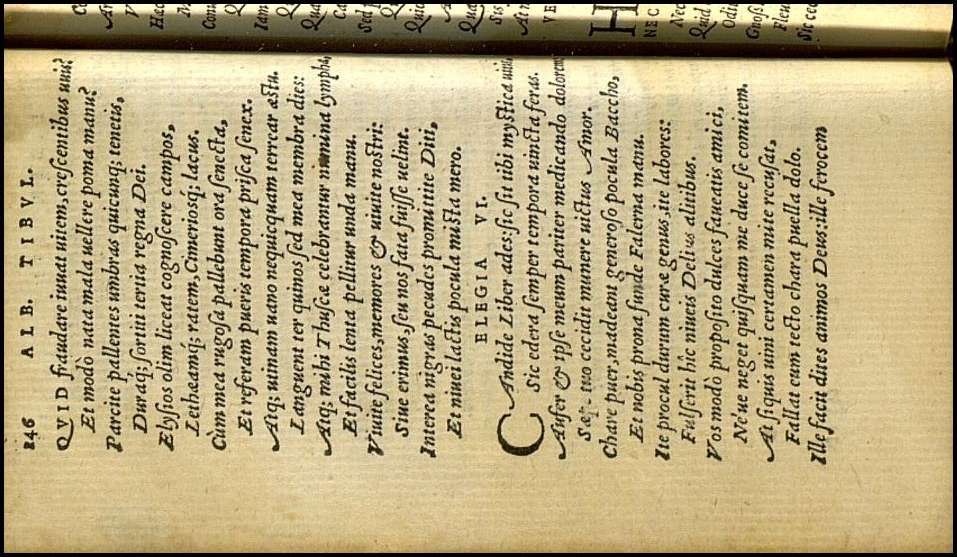 246 ALB. TIBVL.
QVID fraudare iuuat uitem, crescentibus uuis?
Et modò nata mala uellere poma manu?
Parcite pallentes umbras quicunq; tenetis,
Duraq́; sortiti tertia regna Dei.
Elysios olim liceat cognoscere campos,
Letheamq́; ratem, Cimeriosq́; lacus.
Cùm mea rugosa pallebunt ora senecta,
Et referam pueris tempora prisca senex.
Atq; utinam uano nequicquam terrear æstu.
Languent ter quinos sed mea membra dies:
Atq; mihi Thuscæ celebrantur numina lymphæ,
Et facilis lenta pellitur unda manu.
Viuite felices, memores & uiuite nostri:
Siue erimus, seu nos fata fuisse uelint.
Interea nigras pecudes promittite Diti,
Et niuei lactis pocula mista mero.
ELEGIA VI.
CAndide Liber ades: sic sit tibi mystica uitis,
Sic edera semper tempora uincta feras.
Aufer & ipse meum pariter medicando dolorem
Sæpe tuo cecidit munere uictus Amor.
Chare puer, madeant generoso pocula Baccho,
Et nobis prona funde Falerna manu.
Ite procul durum curæ genus, ite labores:
Fulserit hîc niueis Delius alitibus.
Vos modò proposito dulces faueatis amici,
Ne'ue neget quisquam me duce se comitem.
At siquis uini certamen mite recusat,
Fallat eum tecto chara puella dolo.
Ille facit dites animos Deus: ille ferocem